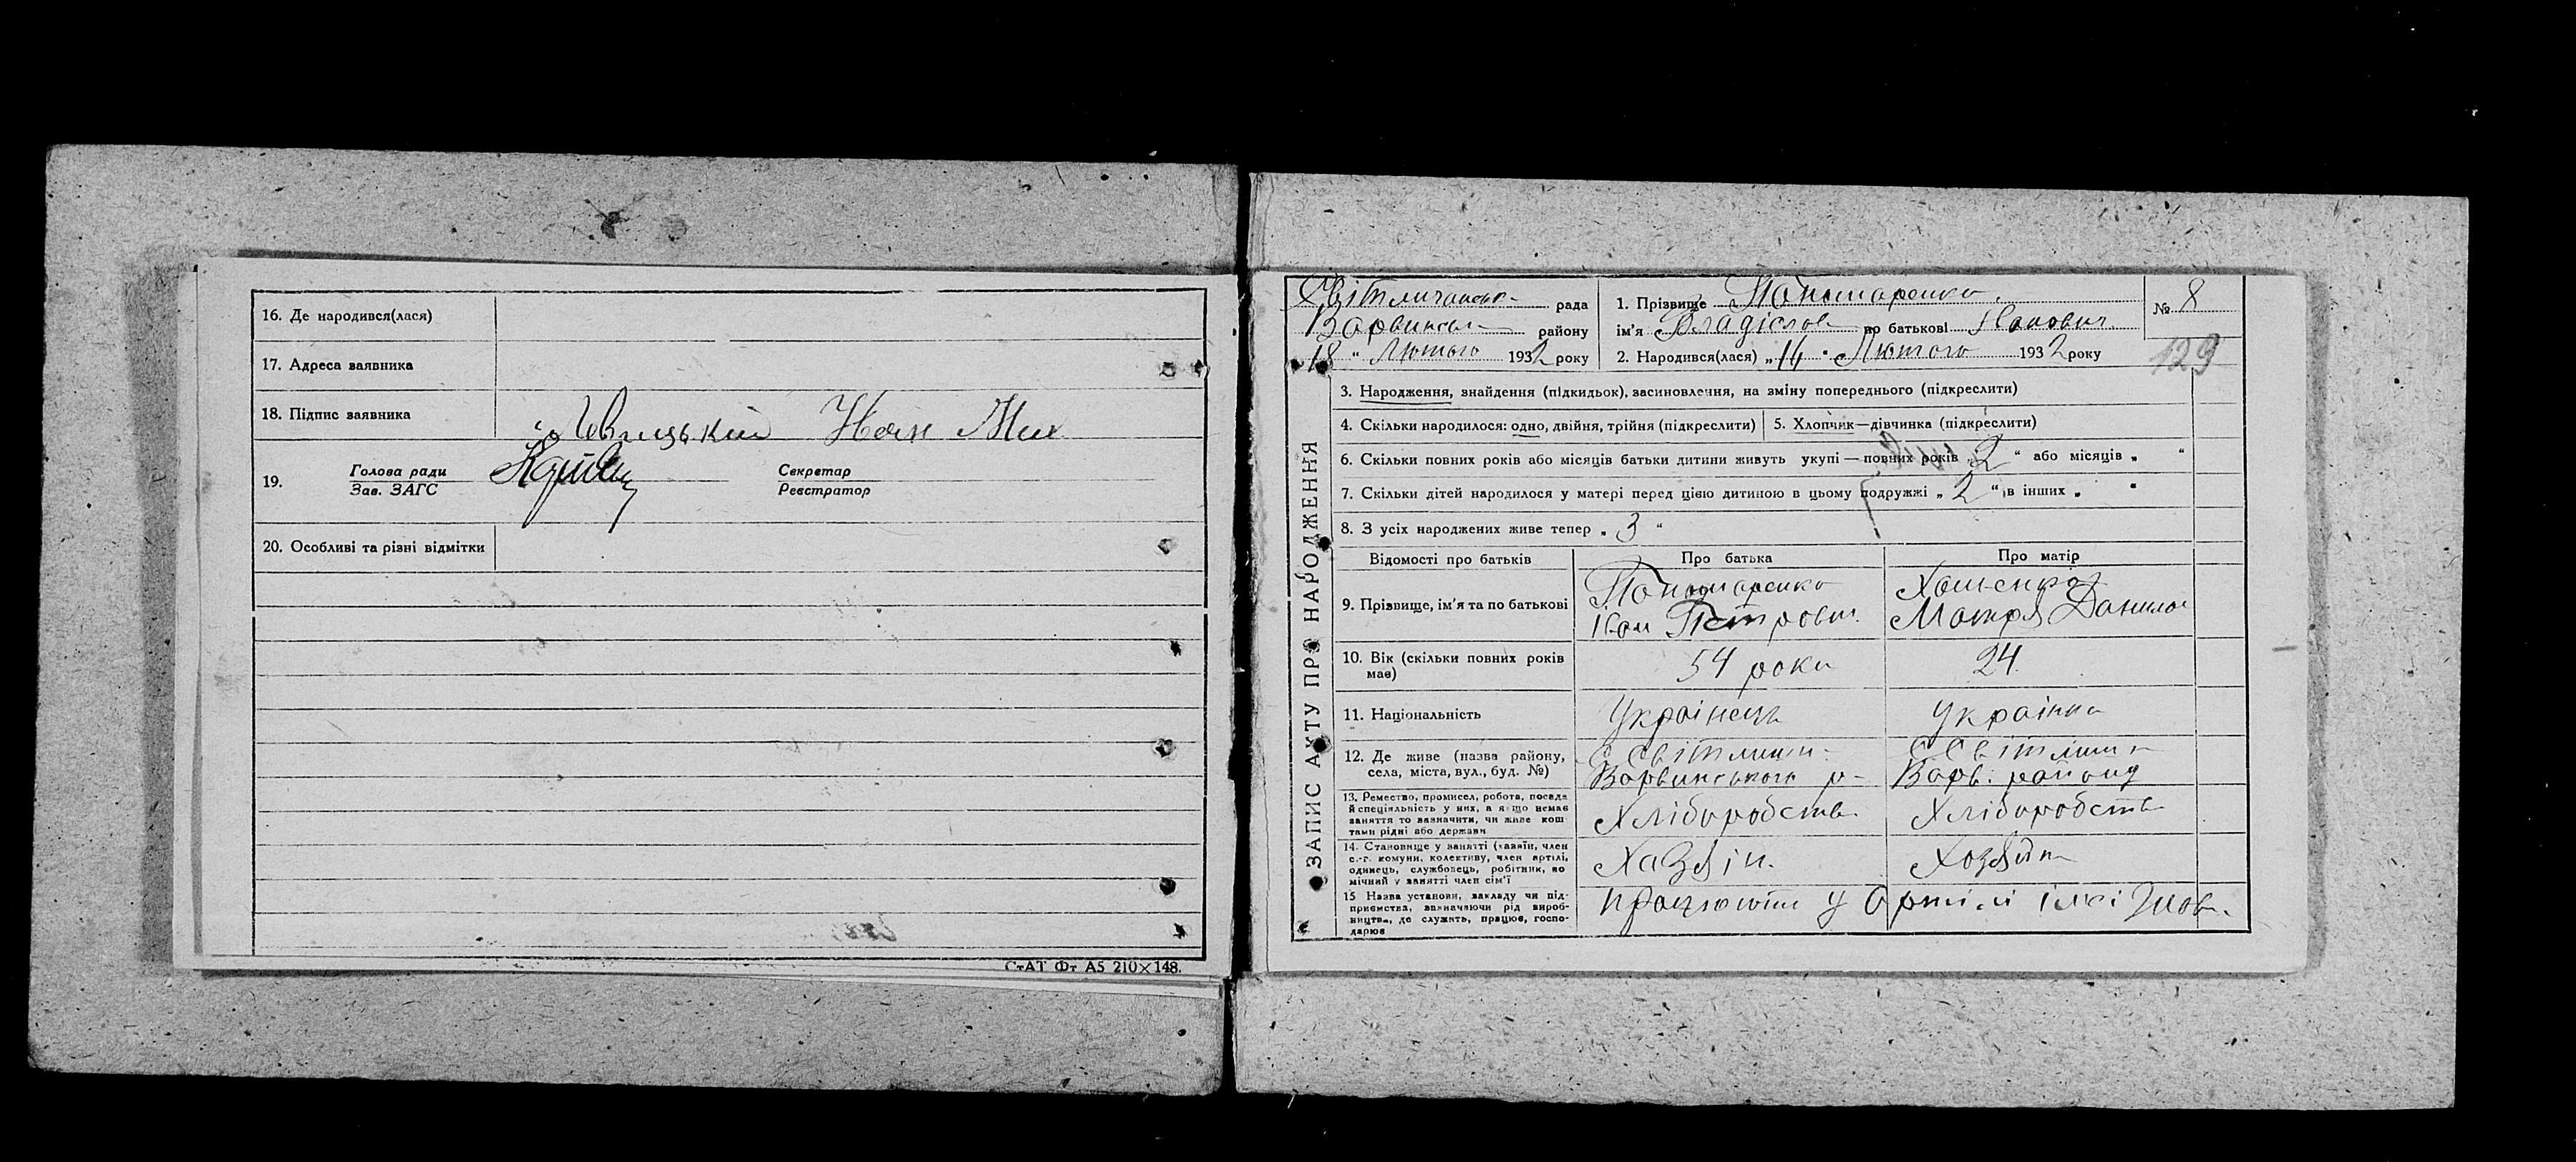 16. Де народився(лася)
17. Адреса заявника
18. Підпис заявника
19. Голова ради
Зав. ЗАГС
Секретар
Реєстратор
20. Особливі та різні відмітки
СтАТ Фт А5 210×148.
ЗАПИС АКТУ ПРО НАРОДЖЕННЯ
рада
Варвинськ району
18 " Лютого 1932 року
1. Прізвище Пономаренко
ім'я Владіслов по батькові
2. Народився(лася) „14" Лютого 1932 року
№ 8
129
3. Народження, знайдення (підкидьок), засиновлення, на зміну попереднього (підкреслити)
4. Скільки народилося: одно, двійня, трійня (підкреслити)
5. Хлопчик—дівчинка (підкреслити)
6. Скільки повних років або місяців батьки дитини живуть укупі—повних років „2" або місяців „ "
7. Скільки дітей народилося у матері перед цією дитиною в цьому подружжі „2" в інших „ "
8. З усіх народжених живе тепер „3"
Відомості про батьків
Про батька
Про матір
9. Прізвище, ім'я та по батькові
Пономаренко
Петрович
Мотря Данилов
10. Вік (скільки повних років має)
54 роки
24
11. Національність
Українець
Українка
12. Де живе (назва району, села, міста, вул., буд. №)
Варвинського р-
Варв. району
13. Ремество, промисел, робота, посада
й спеціяльність у них, а якщо немає
заняття то зазначити, чи живе кош
тами рідні або держави
Хліборобств
Хліборобств
14. Становище у занятті (хазяїн, член
с.-г. комуни, колективу, член артілі,
одинець, службовець, робітник, по
мічний у занятті член сім'ї
Хазяін.
Хозяйк
15 Назва установи, закладу чи під-
приємства, зазначаючи рід вироб-
ництва, де служить, працює, госпо-
дарює
працюють у Артілі